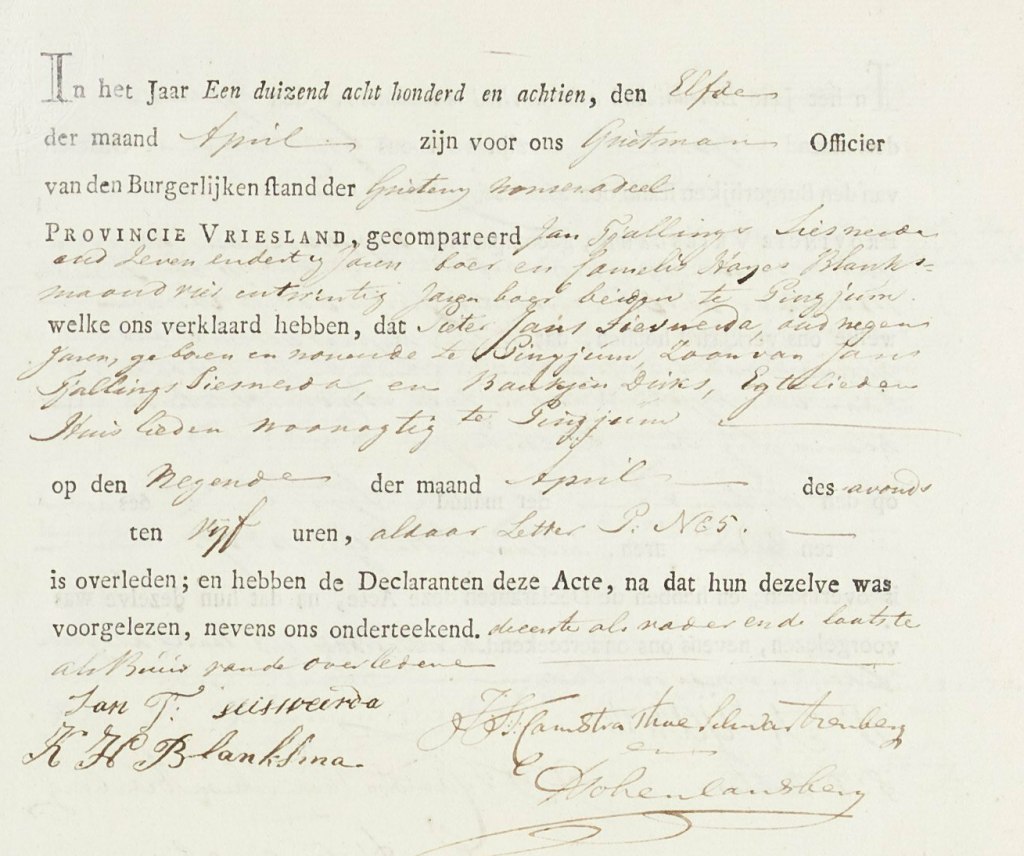 In het Jaar Een duizend acht honderd en achtien, den Elfde
der maand April zijn voor ons Grietman Officier
van den Burgerlijken stand der Grieteny Wonseradeel
PROVINCIE VRIESLAND, gecompareerd Jan Tjallings Sieswerda
oud Zeven endertig Jaren boer en Hayes Blanks-
maoud vier entwintig Jaren boer beiden te Pingjum
welke ons verklaard hebben, dat Pieter Jans Sieswerda, oud negen
Jaren, geboren en wonende te Pingjum, Zoon van Jans
Tjallings Sieswerda, en Baukjen Dirks, Egtelieden
Huislieden woonagtig te Pingjum
op den Negende der maand April des avonds
ten vyf uren, aldaar Letter P: N 65.
is overleden; en hebben de Declaranten deze Acte, na dat hun dezelve was
voorgelezen, nevens ons onderteekend. de eerste als vader en de laatste
als Buur van de overledene
Jan T. seiswerda
K H Blanksma.
Camstra thoe Schwartzenberg
en
Hohenlansberg